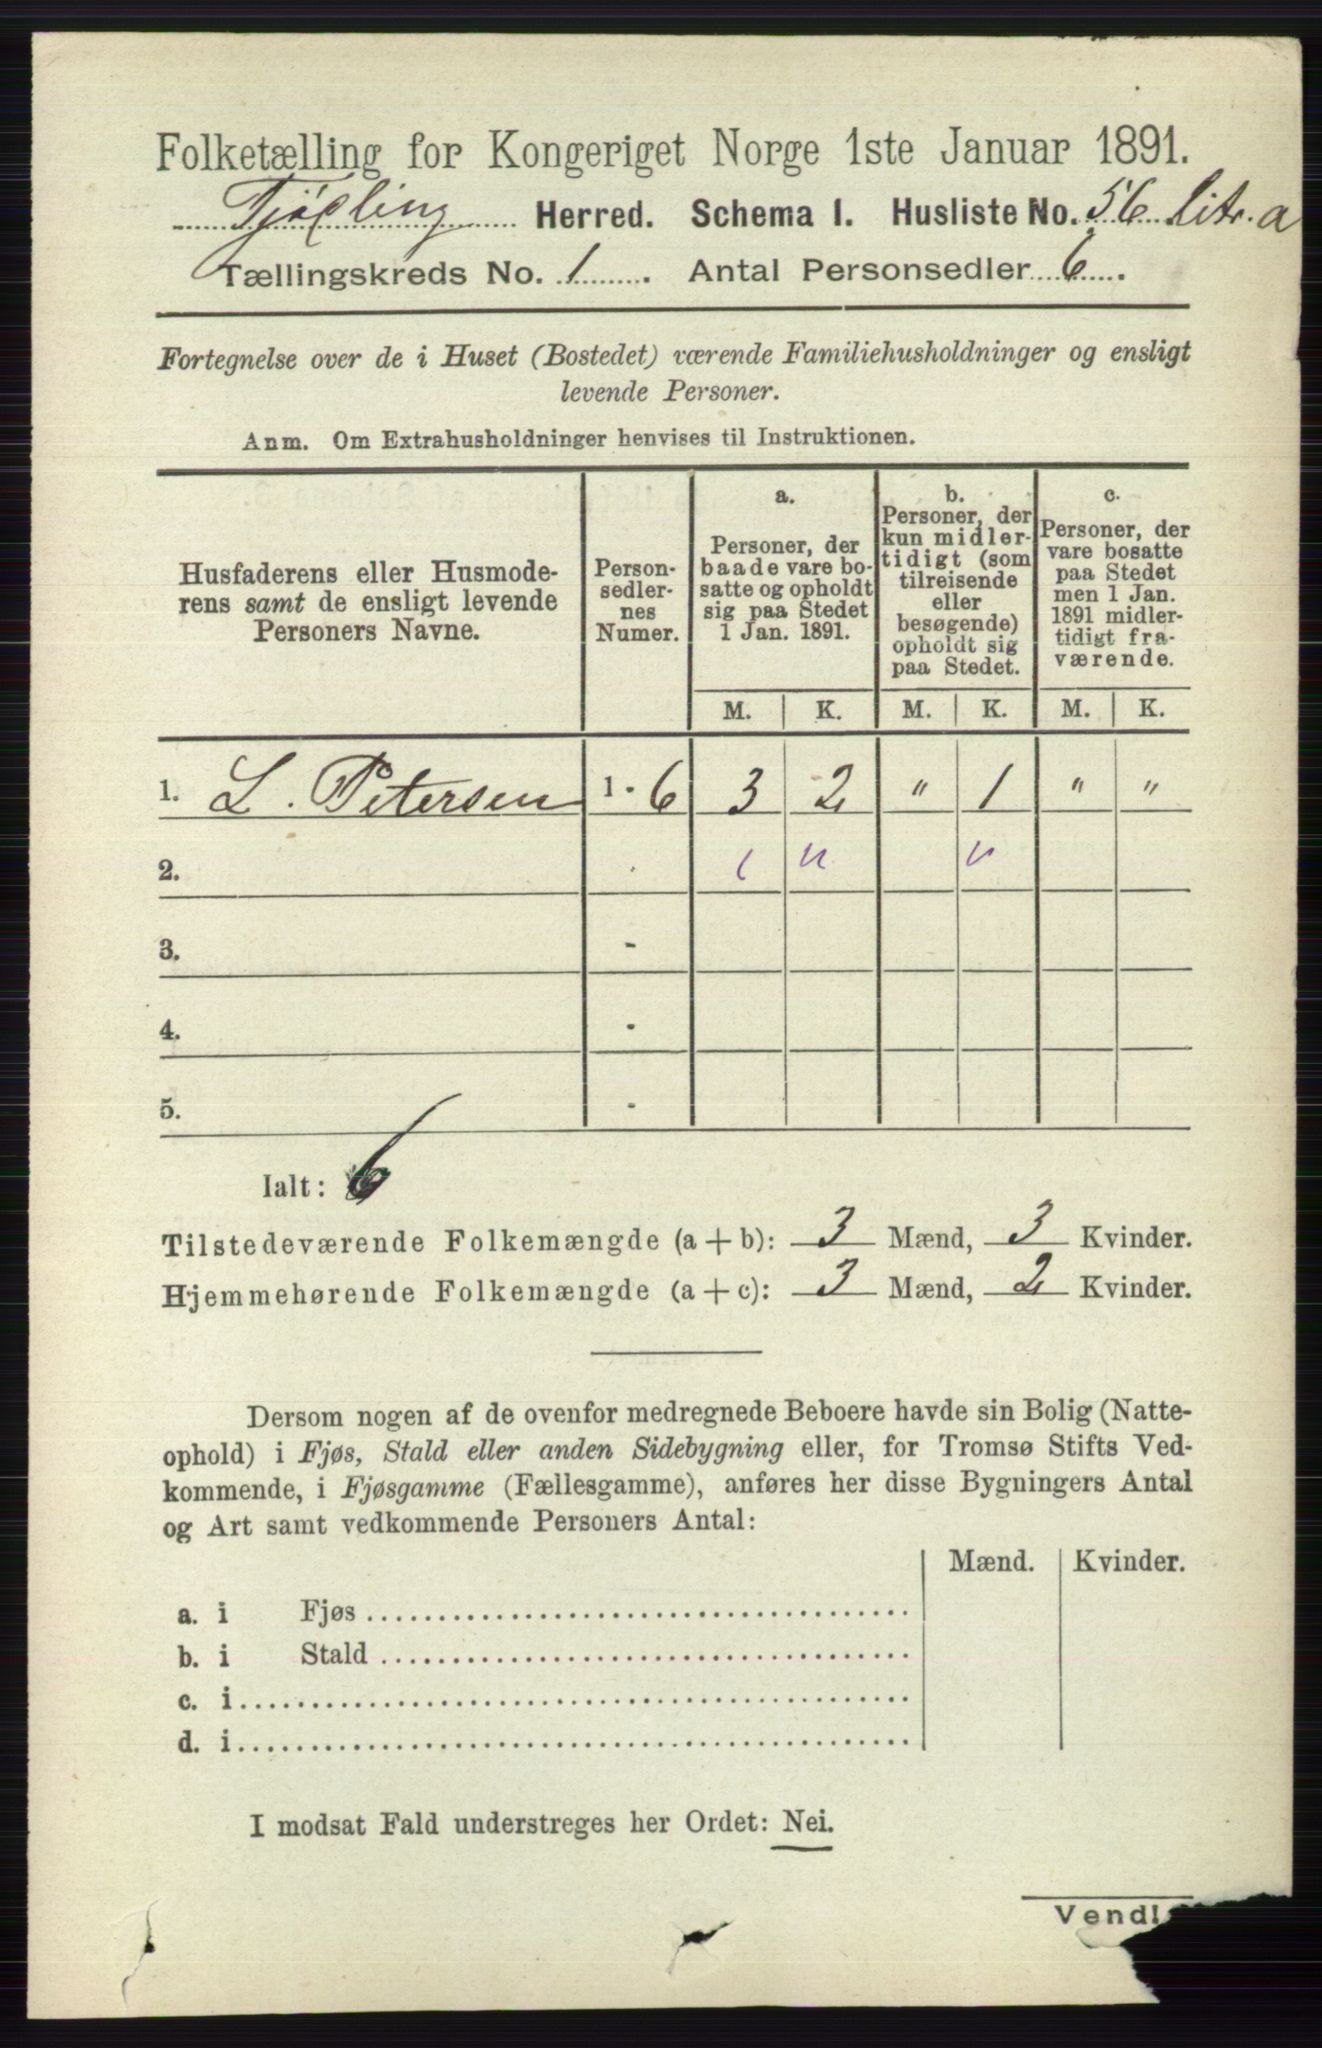 Folketælling for Kongeriget Norge 1ste Januar 1891.
Tjølling Herred. Schema I. Husliste No. 56 Litr. a
Tællingskreds No. 1. Antal Personsedler 6.
Fortegnelse over de i Huset (Bostedet) værende Familiehusholdninger og ensligt
levende Personer.
Anm. Om Extrahusholdninger henvises til Instruktionen.
Husfaderens eller Husmode-
rens samt de ensligt levende
Personers Navne.
Person-
sedler-
nes
Numer.
a.
Personer, der
baade vare bo-
satte og opholdt
sig paa Stedet
1 Jan. 1891.
b.
Personer, der
kun midler-
tidigt (som
tilreisende
eller
besøgende)
opholdt sig
paa Stedet.
c.
Personer, der
vare bosatte
paa Stedet
men 1 Jan.
1891 midler-
tidigt fra-
værende.
M. K. M. K. M. K.
1. L. Petersen 1 - 6 3 2 " 1 " "
2.
3. -
4. -
5. -
Ialt: 6
Tilstedeværende Folkemængde (a + b): 3 Mænd, 3 Kvinder.
Hjemmehørende Folkemængde (a + c): 3 Mænd, 2 Kvinder.
Dersom nogen af de ovenfor medregnede Beboere havde sin Bolig (Natte-
ophold) i Fjøs, Stald eller anden Sidebygning eller, for Tromsø Stifts Ved-
kommende, i Fjøsgamme (Fællesgamme), anføres her disse Bygningers Antal
og Art samt vedkommende Personers Antal:
Mænd. Kvinder.
a. i Fjøs
b. i Stald
c. i
d. i
I modsat Fald understreges her Ordet: Nei.
Vend!